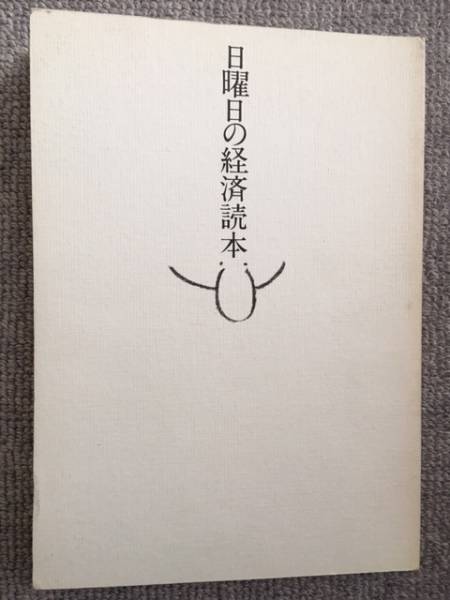 日曜日の経済読本